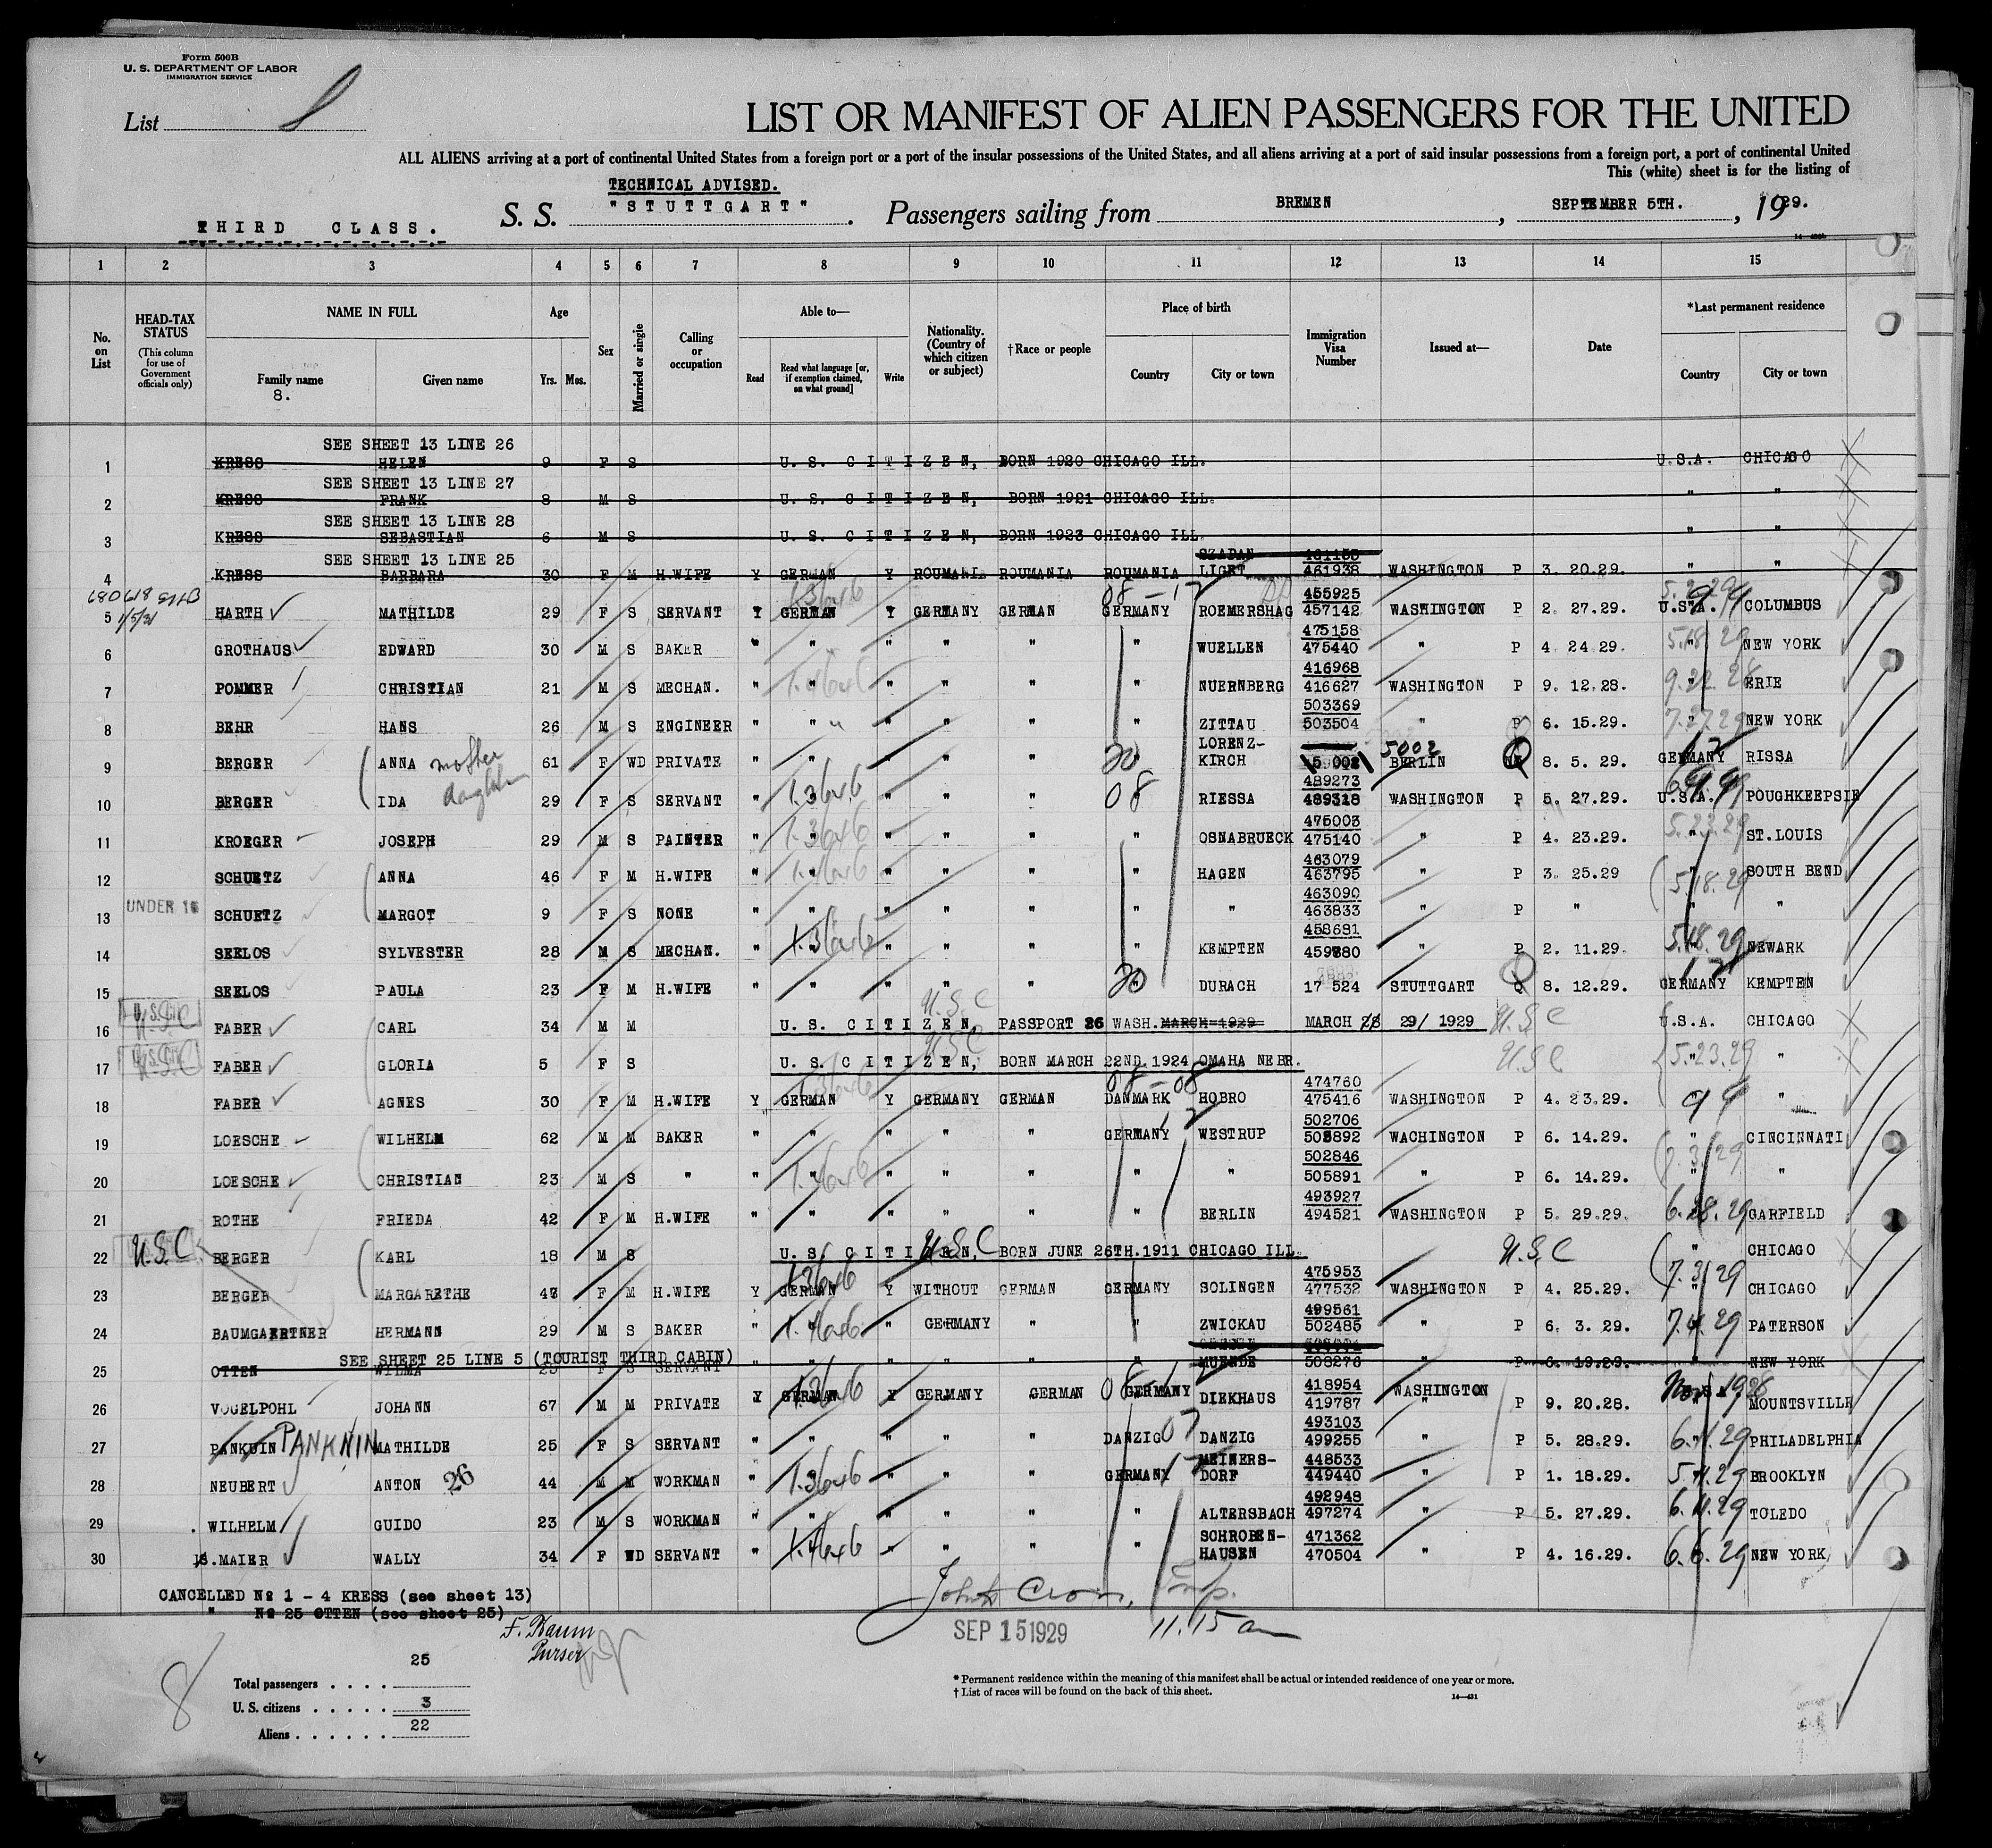 Form 500B
U. S. DEPARTMENT OF LABOR
IMMIGRATION SERVICE
List 8
LIST OR MANIFEST OF ALIEN PASSENGERS FOR THE UNITED
ALL ALIENS arriving at a port of continental United States from a foreign port or a port of the insular possessions of the United States, and all aliens arriving at a port of said insular possessions from a foreign port, a port of continental United
This (white) sheet is for the listing of
TECHNICAL ADVISED.
THIRD CLASS. S. S. "STUTTGART". Passengers sailing from BREMEN, SEPTEMBER 5TH., 1929.
1 2 3 4 5 6 7 8 9 10 11 12 13 14 15
No. on List
HEAD-TAX STATUS
(This column for use of Government officials only)
NAME IN FULL
Family name
8.
Given name
Age
Yrs. Mos.
Sex
Married or single
Calling or occupation
Able to—
Read
Read what language [or, if exemption claimed, on what ground]
Write
Nationality. (Country of which citizen or subject)
†Race or people
Place of birth
Country
City or town
Immigration Visa Number
Issued at—
Date
*Last permanent residence
Country
City or town
SEE SHEET 13 LINE 26
1 KRESS HELEN 9 F S U. S. CITIZEN, BORN 1920 CHICAGO ILL. U.S.A. CHICAGO
SEE SHEET 13 LINE 27
2 KRESS FRANK 8 M S U. S. CITIZEN, BORN 1921 CHICAGO ILL. " "
SEE SHEET 13 LINE 28
3 KRESS SEBASTIAN 6 M S U. S. CITIZEN, BORN 1923 CHICAGO ILL. " "
SEE SHEET 13 LINE 25 SZADAN 461155
4 KRESS BARBARA 30 F M H.WIFE Y GERMAN Y ROUMANIA ROUMANIA ROUMANIA LIGET 461938 WASHINGTON P 3. 20.29. " "
1/5/31 1.3646 08 455925 5.2.29
5 HARTH MATHILDE 29 F S SERVANT Y GERMAN Y GERMANY GERMAN GERMANY ROEMERSHAG 457142 WASHINGTON P 2. 27.29. U.S.A. 99 COLUMBUS
475158
6 GROTHAUS EDWARD 30 M S BAKER " " " " " " WUELLEN 475440 " P 4. 24 29. 5.18.29 NEW YORK
416968
7 POMMER CHRISTIAN 21 M S MECHAN. " " " " " " NUERNBERG 416627 WASHINGTON P 9. 12.28. 9.22.28 ERIE
503369
8 BEHR HANS 26 M S ENGINEER " " " " " " ZITTAU 503504 " P 6. 15.29. 7.27.29 NEW YORK
LORENZ-
9 BERGER ANNA mother 61 F WD PRIVATE " " " " " 20 KIRCH 5002 BERLIN 8. 5. 29. GERMANY RISSA
489273
10 BERGER IDA daughter 29 F S SERVANT " 1.3646 " " " 08 RIESSA 489318 WASHINGTON P 5. 27.29. U.S.A. POUGHKEEPSIE
475003
11 KROEGER JOSEPH 29 M S PAINTER " 1.3646 " " " " OSNABRUECK 475140 " P 4. 23.29. 5.23.29 ST.LOUIS
463079
12 SCHUETZ ANNA 46 F M H.WIFE " " " " " " HAGEN 463795 " P 3. 25.29 5.18.29 SOUTH BEND
463090
13 UNDER 16 SCHUETZ MARGOT 9 F S NONE " " " " " " " 463833 " P " " "
458681
14 SEELOS SYLVESTER 28 M S MECHAN. " 1.3646 " " " " KEMPTEN 459880 " P 2. 11.29. 5.18.29 NEWARK
15 SEELOS PAULA 23 F M H.WIFE " " " " " 20 DURACH 17 524 STUTTGART Q 8. 12.29. GERMANY KEMPTEN
16 U.S.C FABER CARL 34 M M U. S. CITIZEN, U.S.C PASSPORT 26 WASH. MARCH 1929 MARCH 28 29/ 1929 U.S.C U.S.A. CHICAGO
17 U.S.C FABER GLORIA 5 F S U. S. CITIZEN, U.S.C BORN MARCH 22ND. 1924 OMAHA NEBR. U.S.C 5.23.29 "
1.3646 08-08 474760
18 FABER AGNES 30 F M H.WIFE Y GERMAN Y GERMANY GERMAN DANMARK HOBRO 475416 WASHINGTON P 4. 23.29. 99 "
502706
19 LOESCHE WILHELM 62 M M BAKER " " " " " GERMANY WESTRUP 503892 WACHINGTON P 6. 14.29. " CINCINNATI
502846
20 LOESCHE CHRISTIAN 23 M S " " " " " " " " 505891 " P 6. 14.29. 7.3.29 "
493927
21 ROTHE FRIEDA 42 F M H.WIFE " " " " " " BERLIN 494521 WASHINGTON P 5. 29.29. 6.28.29 GARFIELD
22 U.S.C BERGER KARL 18 M S U. S. CITIZEN, U.S.C BORN JUNE 26TH.1911 CHICAGO ILL. U.S.C " CHICAGO
1.3646 475953
23 BERGER MARGARETHE 47 F M H.WIFE Y GERMAN Y WITHOUT GERMAN GERMANY SOLINGEN 477532 WASHINGTON P 4. 25.29. 7.3.29 CHICAGO
499561
24 BAUMGAERTNER HERMANN 29 M S BAKER " 1.4646 " GERMANY " " ZWICKAU 502485 " P 6. 3. 29. 7.4.29 PATERSON
SEE SHEET 25 LINE 5 (TOURIST THIRD CABIN)
25 OTTEN WILMA 25 F S SERVANT " " " " " " MUENDE 508276 " P 6. 19.29. " NEW YORK
418954
26 VOGELPOHL JOHANN 67 M M PRIVATE Y GERMAN 1.3646 Y GERMANY GERMAN 08 GERMANY DIEKHAUS 419787 WASHINGTON P 9. 20.28. Nov 1928 MOUNTSVILLE
493103
27 PANKUIN PANKNIN MATHILDE 25 F S SERVANT " " " " " DANZIG 07 DANZIG 499255 " P 5. 28.29. 6.11.29 PHILADELPHIA
MEINERS- 448533
28 NEUBERT ANTON 26 44 M M WORKMAN " 1.3646 " " " GERMANY DORF 449440 " P 1. 18.29. 5.11.29 BROOKLYN
492948
29 WILHELM GUIDO 23 M S WORKMAN " " " " " " ALTERSBACH 497274 " P 5. 27.29. 6.11.29 TOLEDO
SCHROBEN- 471362
30 MAIER WALLY 34 F WD SERVANT " 1.4646 " " " " HAUSEN 470504 " P 4. 16.29. 6.6.29 NEW YORK
CANCELLED No 1 - 4 KRESS (see sheet 13)
" No 25 OTTEN (see sheet 25)
F. Baum
Purser
SEP 15 1929 11.15 am
8
Total passengers 25
U. S. citizens 3
Aliens 22
* Permanent residence within the meaning of this manifest shall be actual or intended residence of one year or more.
† List of races will be found on the back of this sheet.
14—431